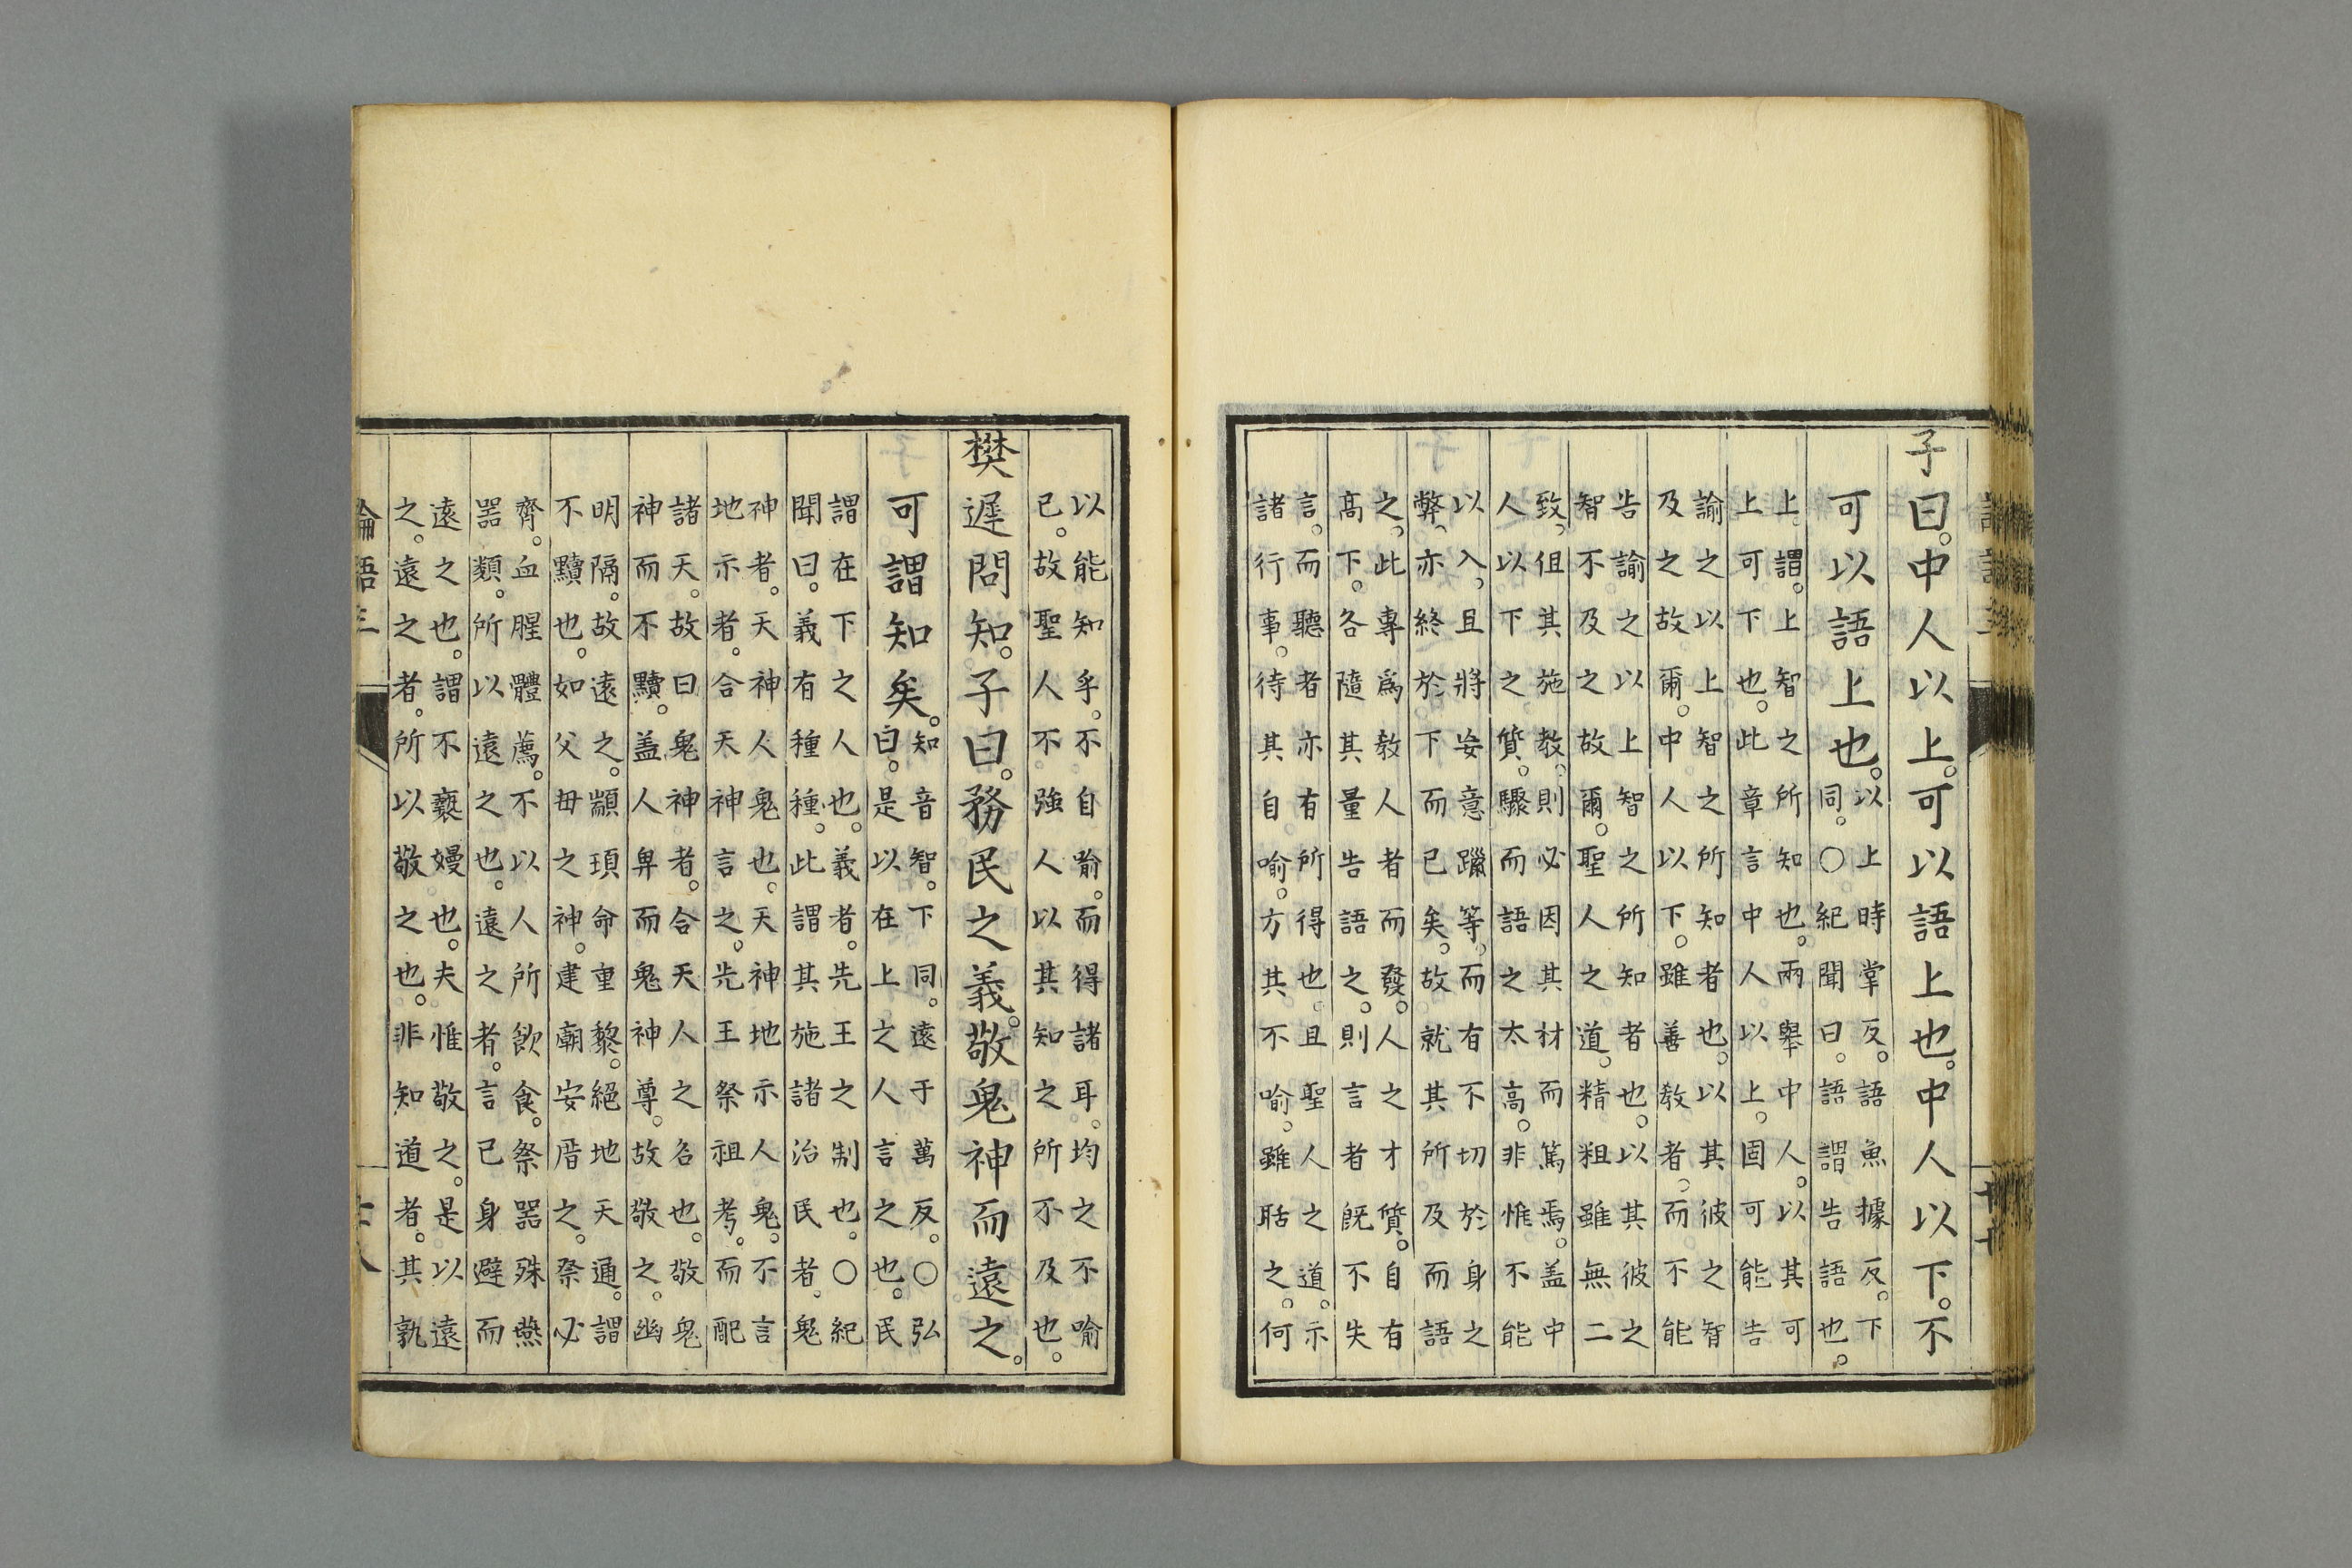 子曰。中人以上。可以語上也。中人以下。不
可以語上也。
以上時掌反。語魚據反。下
同。○紀聞曰。語謂告語也。
上。謂上智之所知也。兩舉中人。以其可
上可下也。此章言中人以上。固可能告
諭之以上智之所知者也。以其彼之智
及之故爾。中人以下。雖善教者。而不能
告諭之以上智之所知者也。以其彼之
智不及之故爾。聖人之道。精粗雖無二
致。但其施教。則必因其材而篤焉。盖中
人以下之質。驟而語之太高。非惟不能
以入。且將妄意躐等。而有不切於身之
弊。亦終於下而已矣。故就其所及而語
之。此專爲教人者而發。人之才質。自有
高下。各隨其量告語之。則言者既不失
言。而聽者亦有所得也。且聖人之道。示
諸行事。待其自喻。方其不喻。雖聒之。何
以能知乎。不自喻。而得諸耳。均之不喻
已。故聖人不強人以其知之所不及也。
樊遲問知。子曰。務民之義。敬鬼神而遠之。
可謂知矣。
知音智。下同。遠于萬反。○弘
曰。是以在上之人言之也。民
謂在下之人也。義者。先王之制也。○紀
聞曰。義有種種。此謂其施諸治民者。鬼
神者。天神人鬼也。天神地示人鬼。不言
地示者。合天神言之。先王祭祖考。而配
諸天。故曰鬼神者。合天人之名也。敬鬼
神而不黷。盖人卑而鬼神尊。故敬之。幽
明隔。故遠之。顓頊命重黎。絕地天通。謂
不黷也。如父毌之神。建廟安厝之。祭必
齊。血腥體薦。不以人所飲食。祭器殊燕
器類。所以遠之也。遠之者。言已身避而
遠之也。謂不褻嫚也。夫惟敬之。是以遠
之。遠之者。所以敬之也。非知道者。其孰
論語三